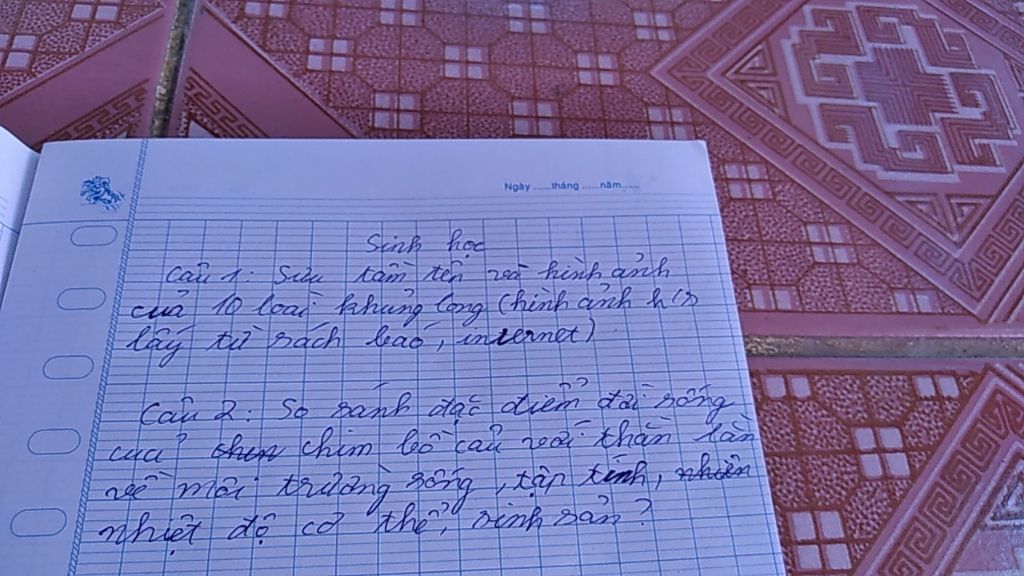 Ngày ......tháng ......năm......
Sinh học
Câu 1: Sưu tầm tên và hình ảnh
của 10 loài khủng long (hình ảnh h/s
lấy từ sách báo, internet)
Câu 2: So sánh đặc điểm đời sống
của chim bồ câu với thằn lằn
về môi trường sống, tập tính,
nhiệt độ cơ thể, sinh sản?